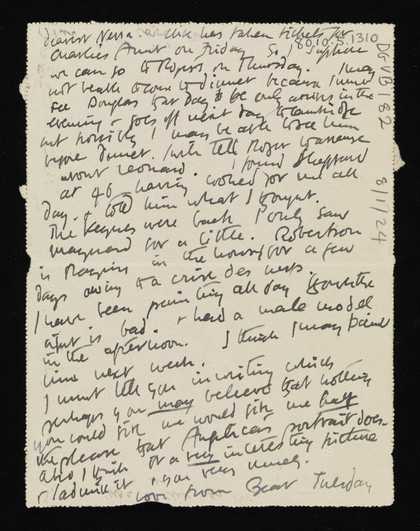 dearest Nessa. has taken tickets for
Charlies Aunt on Friday. So I suppose
we can go to Rogers on Thursday. I may
not be able to come to dinner because I must
see Douglas that day & he only arrives in the
evening & goes off next day to Cambridge
but possibly I may be able to see him
before dinner. I will tell Roger to
about Leonard. I found Sheppard
at 46 having looked for me all
day. & told him what I thought.
The Keynes were back I only saw
Maynard for a little. Robertson
is staying in the house for a few
days owing to a crise des nerfs.
I have been painting all day though the
light is bad. & had a male model
in the afternoon. I think I may paint
him next week.
I must tell you in writing which
perhaps you may believe that nothing
you could give me would give me half
the pleasure that Angelicas portrait does.
Also I think it a very interesting picture
& I admire it & you very much.
love from Bear Tuesday
80.10.5.1310
DG VB 182
8/1/24